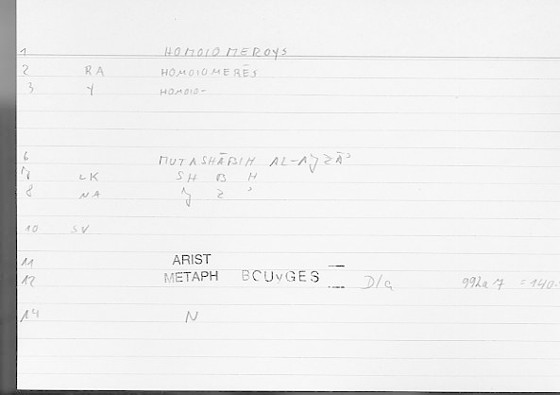 1 HOMOIOMEROYS
2 RA HOMOIOMERĒS
3 Y HOMOIO-
6 MUTASHĀBIH AL-AǦZĀʾ
7 LK SH B H
8 NA Ǧ Z ʾ
10 SV
11 ARIST
12 METAPH BOUYGES D/a 992a7 = 140
14 N